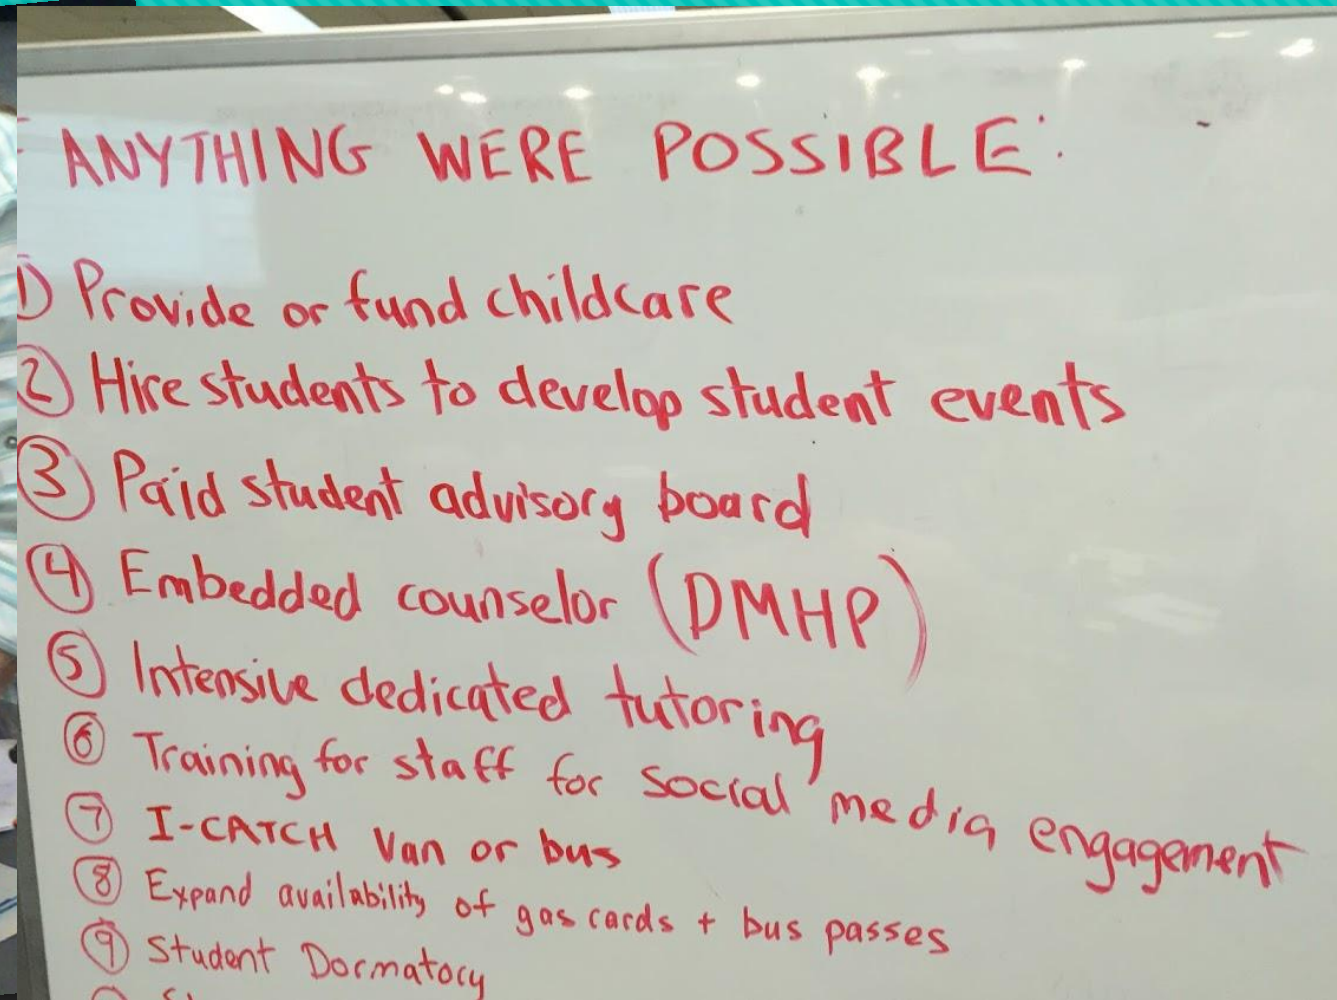 ANYTHING WERE POSSIBLE:
1) Provide or fund childcare
2) Hire students to develop student events
3) Paid student advisory board
4) Embedded counselor (DMHP)
5) Intensive dedicated tutoring
6) Training for staff for social media engagement
7) I-CATCH Van or bus
8) Expand availability of gas cards + bus passes
9) Student Dormatory